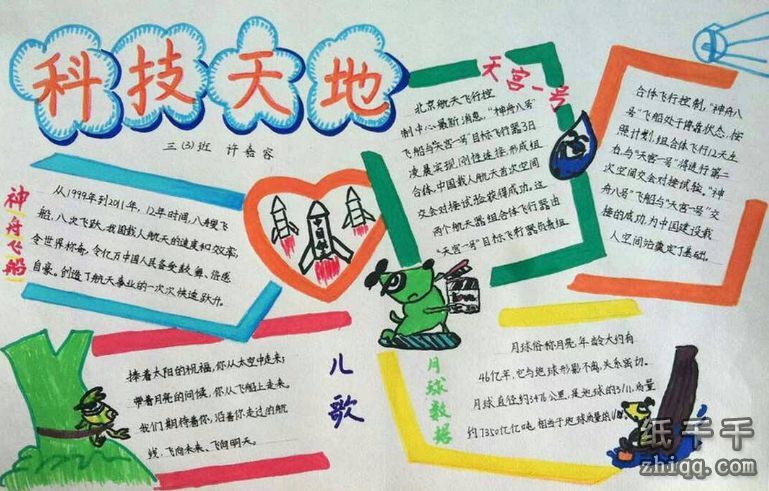 科技天地
三(3)班 许嘉容
神舟飞船
从1999年到2011年，12年时间，八艘飞
船，八次飞跃，我国载人航天的速度和效率，
令世界称奇，令亿万中国人民备受鼓舞、倍感
自豪。创造了航天事业的一次次快速跃升。
中国航
天宫一号
北京航天飞行控
制中心最新消息，"神舟八号"
飞船与"天宫一号"目标飞行器3日
凌晨实现刚性连接，形成组
合体，中国载人航天首次空间
交会对接试验获得成功。这
两个航天器组合体飞行器由
"天宫一号"目标飞行器负责组
合体飞行控制，"神舟八
号"飞船处于停靠状态，按
照计划，组合体飞行12天左
右，与"天宫一号"将进行第二
次空间交会对接试验。"神
舟八号"飞船与"天宫一号"交
接的成功，为中国建设载
人空间站奠定了基础。
儿歌
捧着太阳的祝福，你从太空中走来；
带着月亮的问候，你从飞船上走来。
我们期待着你，沿着你走过的航
线，飞向未来、飞向明天。
月球数据
月球俗称月亮，年龄大约有
46亿年，它与地球形影不离，关系密切。
月球直径约3476公里，是地球的3/11，质量
约7350亿亿吨，相当于地球质量的1/81。
纸千千
zhiqq.com